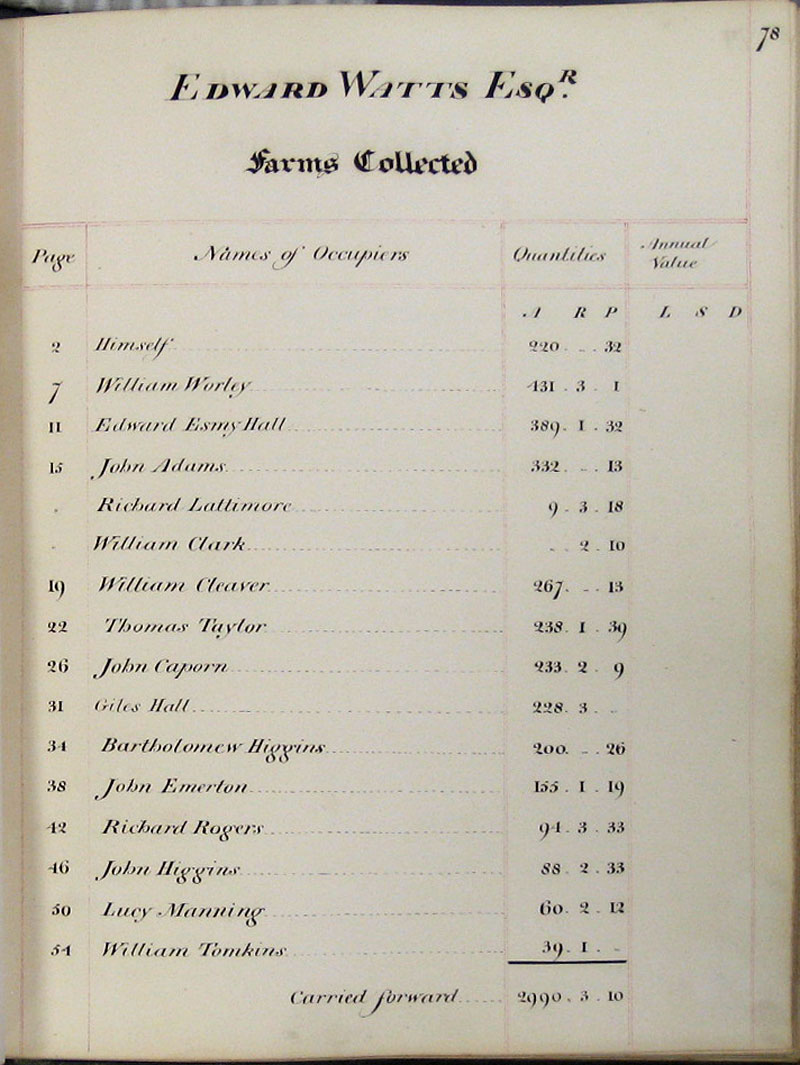 78
Edward Watts Esq.R
Farms Collected
Page Names of Occupiers Quantities Annual Value
A R P L S D
2 Himself 220 . - . 32
7 William Worley 431 . 3 . 1
11 Edward Esmy Hall 389 . 1 . 32
15 John Adams 332 . - . 13
. Richard Lattimore 9 . 3 . 18
. William Clark - . 2 . 10
19 William Cleaver 267 . - . 13
22 Thomas Taylor 238 . 1 . 39
26 John Caporn 233 . 2 . 9
31 Giles Hall 228 . 3 . -
34 Bartholomew Higgins 200 . - . 26
38 John Emerton 155 . 1 . 19
42 Richard Rogers 94 . 3 . 33
46 John Higgins 88 . 2 . 33
50 Lucy Manning 60 . 2 . 12
54 William Tomkins 39 . 1 . -
Carried forward 2990 . 3 . 10